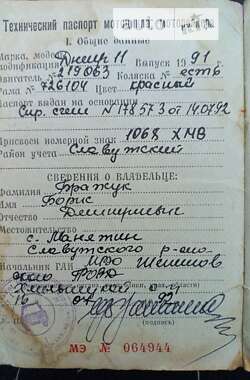 Технический паспорт мотоцикла, мотороллера
1. Общие данные
Марка, модель
модификация Днепр 11 Выпуск 1991 г.
Двигатель № 219063 Коляска есть
Рама № 726104 Цвет красный
Паспорт выдан на основании
Спр. счет N 178573 от 14.04.92
Присвоен номерной знак 1068 ХМВ
Район учета Славутский
СВЕДЕНИЯ О ВЛАДЕЛЬЦЕ:
Фамилия Бражук
Имя Борис
Отчество Дмитриевич
Местожительство
с. Манятин
Славутского р-она
Начальник ГАИ МРО Шепетов
РОВД
16 04 92
(подпись)
МЭ № 064944